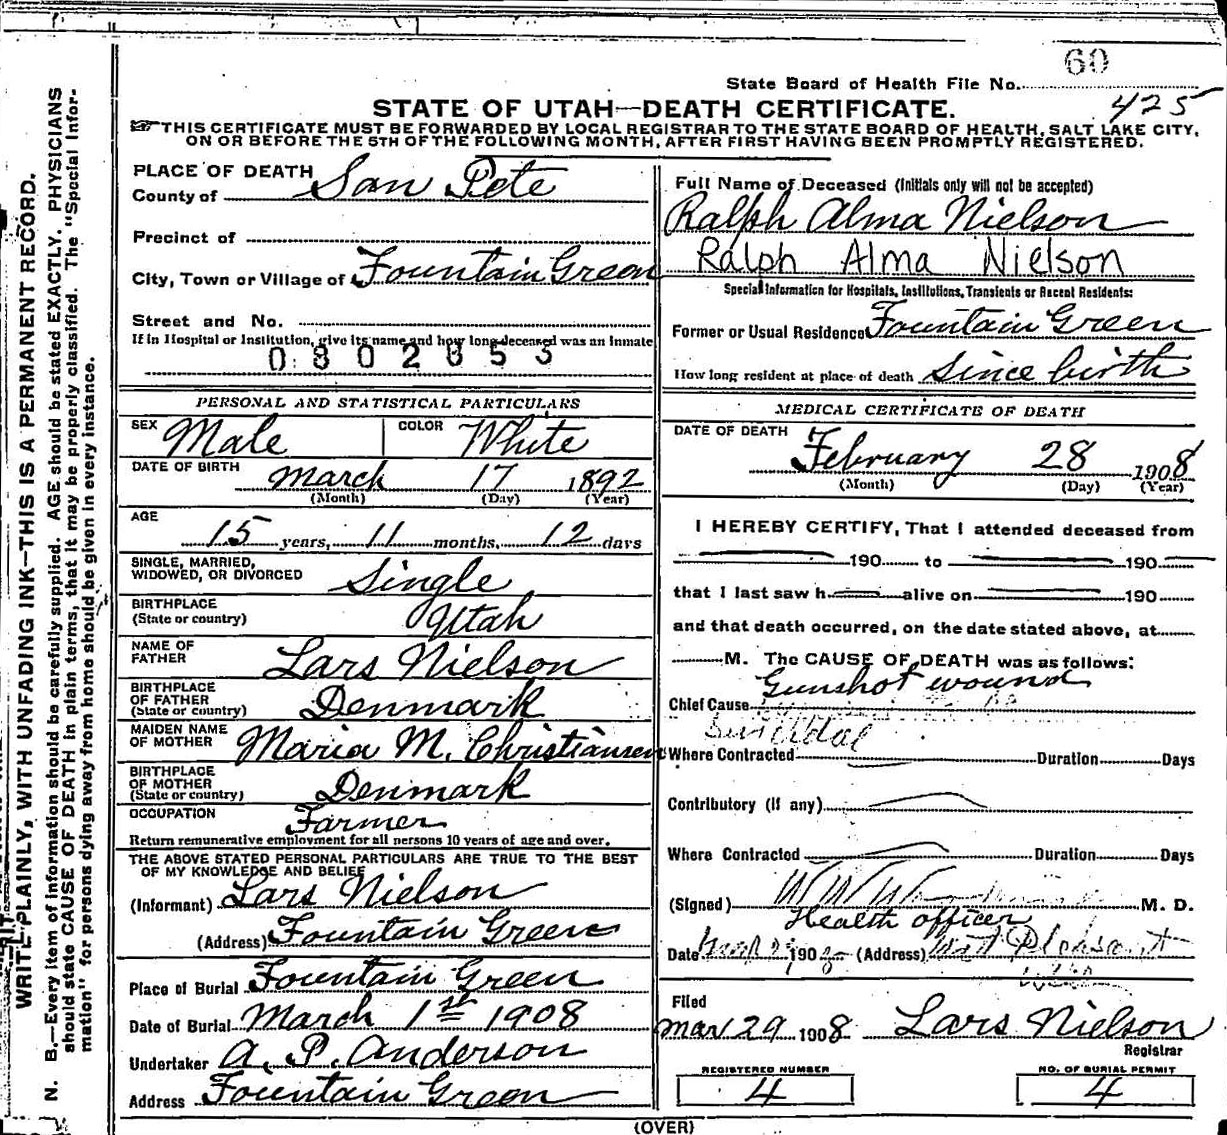 60
State Board of Health File No.
425
STATE OF UTAH—DEATH CERTIFICATE.
THIS CERTIFICATE MUST BE FORWARDED BY LOCAL REGISTRAR TO THE STATE BOARD OF HEALTH, SALT LAKE CITY,
ON OR BEFORE THE 5TH OF THE FOLLOWING MONTH, AFTER FIRST HAVING BEEN PROMPTLY REGISTERED.
WRITE PLAINLY, WITH UNFADING INK—THIS IS A PERMANENT RECORD.
N. B.—Every item of information should be carefully supplied. AGE should be stated EXACTLY. PHYSICIANS
should state CAUSE OF DEATH in plain terms, that it may be properly classified. The "Special Infor-
mation" for persons dying away from home should be given in every instance.
PLACE OF DEATH
County of San Pete
Precinct of
City, Town or Village of Fountain Green
Street and No.
If in Hospital or Institution, give its name and how long deceased was an inmate
0802853
PERSONAL AND STATISTICAL PARTICULARS
SEX Male COLOR White
DATE OF BIRTH March 17 1892
(Month) (Day) (Year)
AGE
15 years, 11 months, 12 days
SINGLE, MARRIED,
WIDOWED, OR DIVORCED Single
BIRTHPLACE
(State or country) Utah
NAME OF
FATHER Lars Nielson
BIRTHPLACE
OF FATHER
(State or country) Denmark
MAIDEN NAME
OF MOTHER Maria M. Christiansen
BIRTHPLACE
OF MOTHER
(State or country) Denmark
OCCUPATION Farmer
Return remunerative employment for all persons 10 years of age and over.
THE ABOVE STATED PERSONAL PARTICULARS ARE TRUE TO THE BEST
OF MY KNOWLEDGE AND BELIEF
(Informant) Lars Nielson
(Address) Fountain Green
Place of Burial Fountain Green
Date of Burial March 1st 1908
Undertaker A. P. Anderson
Address Fountain Green
Full Name of Deceased (Initials only will not be accepted)
Ralph Alma Nielson
Ralph Alma Nielson
Special Information for Hospitals, Institutions, Transients or Recent Residents:
Former or Usual Residence Fountain Green
How long resident at place of death Since birth
MEDICAL CERTIFICATE OF DEATH
DATE OF DEATH
February 28 1908
(Month) (Day) (Year)
I HEREBY CERTIFY, That I attended deceased from
190 to 190
that I last saw h alive on 190
and that death occurred, on the date stated above, at
M. The CAUSE OF DEATH was as follows:
Gunshot wound
Chief Cause
Suicidal
Where Contracted Duration Days
Contributory (If any)
Where Contracted Duration Days
(Signed) M. D.
Health officer
Date 190 8 (Address)
Filed
Mar 29 1908 Lars Nielson
Registrar
REGISTERED NUMBER
4
NO. OF BURIAL PERMIT
4
(OVER)